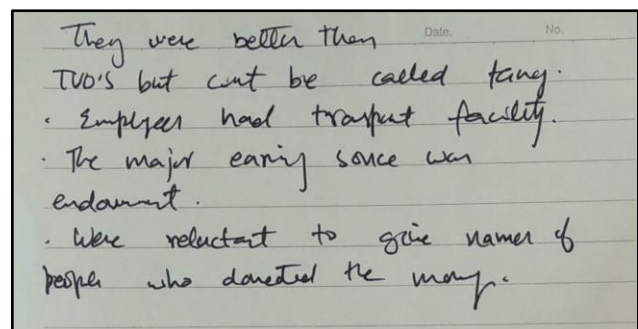 Date. No.
They were better then
TVO'S but cant be called
· Employees had transport facility.
· The major earing source was
endowment.
· Were reluctant to give names of
people who donated the money.